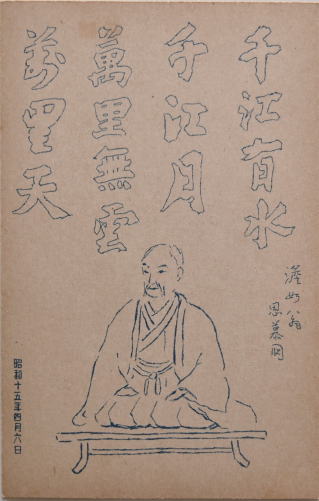 千江有水
千江月
萬里無雲
萬里天
澹如翁
恩慕
昭和十五年四月六日